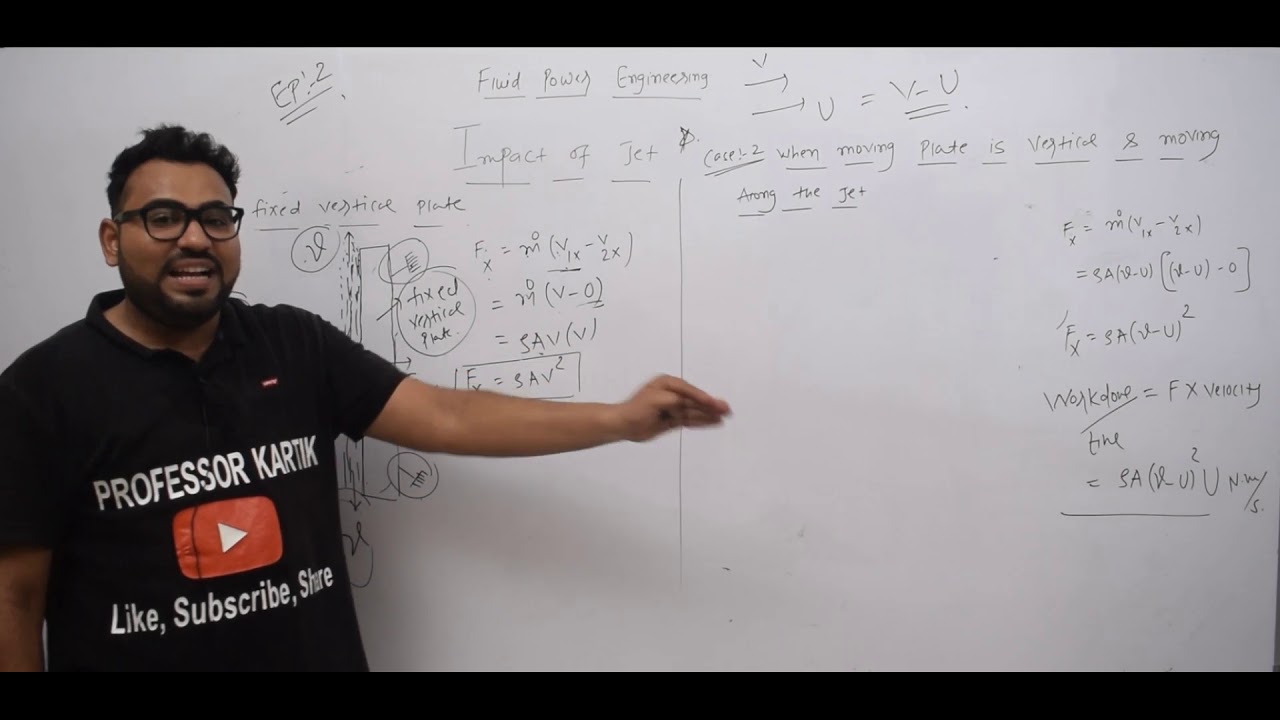 EP:-2
Fluid Power Engineering
V
U = V-U
Impact of Jet
fixed vertical plate
ϑ
fixed
vertical
plate.
Fx = ṁ(V1x-V2x)
= ṁ(V-0)
= ρAV(V)
Fx = ρAV²
Case:-2 when moving Plate is Vertical & moving
Along the Jet
Fx = ṁ(V1x-V2x)
= ρA(ϑ-U)[(ϑ-U)-0]
Fx = ρA(ϑ-U)²
Workdone = F X Velocity
time
= ρA(ϑ-U)² U N.m/s.
PROFESSOR KARTIK
Like, Subscribe, Share